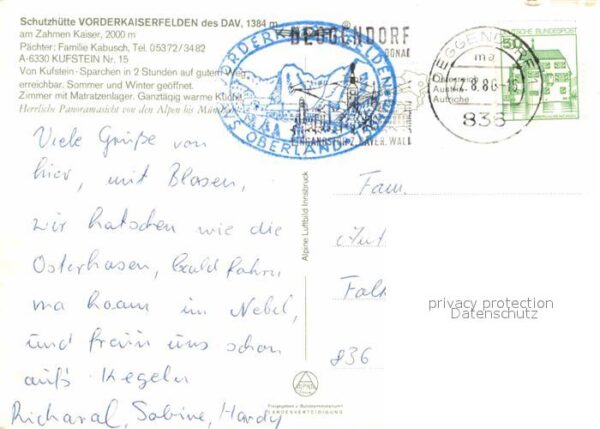 Schutzhütte VORDERKAISERFELDEN des DAV, 1384 m
am Zahmen Kaiser, 2000 m
Pächter: Familie Kabusch, Tel. 05372/3482
A-6330 KUFSTEIN Nr. 15
Von Kufstein-Sparchen in 2 Stunden auf gutem Weg
erreichbar. Sommer und Winter geöffnet.
Zimmer mit Matratzenlager. Ganztägig warme Küche
Herrliche Panoramasicht von den Alpen bis München
VORDERKAISERFELDEN
OBERLAND
DEGGENDORF
DONAU
EINGANGSTOR Z. BAYER. WALD
DEGGENDORF
ma
8.86
836
Österreich
Austria
Autriche
50
DEUTSCHE BUNDESPOST
Viele Grüße von
hier, mit Blasen,
wir hatschen wie die
Osterhasen, bald fahrn
ma haam im Nebel,
und frein uns schon
auf's Kegeln
Richard, Sabine, Hardy
Alpine Luftbild Innsbruck
Fam.
836
privacy protection
Datenschutz
LANDESVERTEIDIGUNG